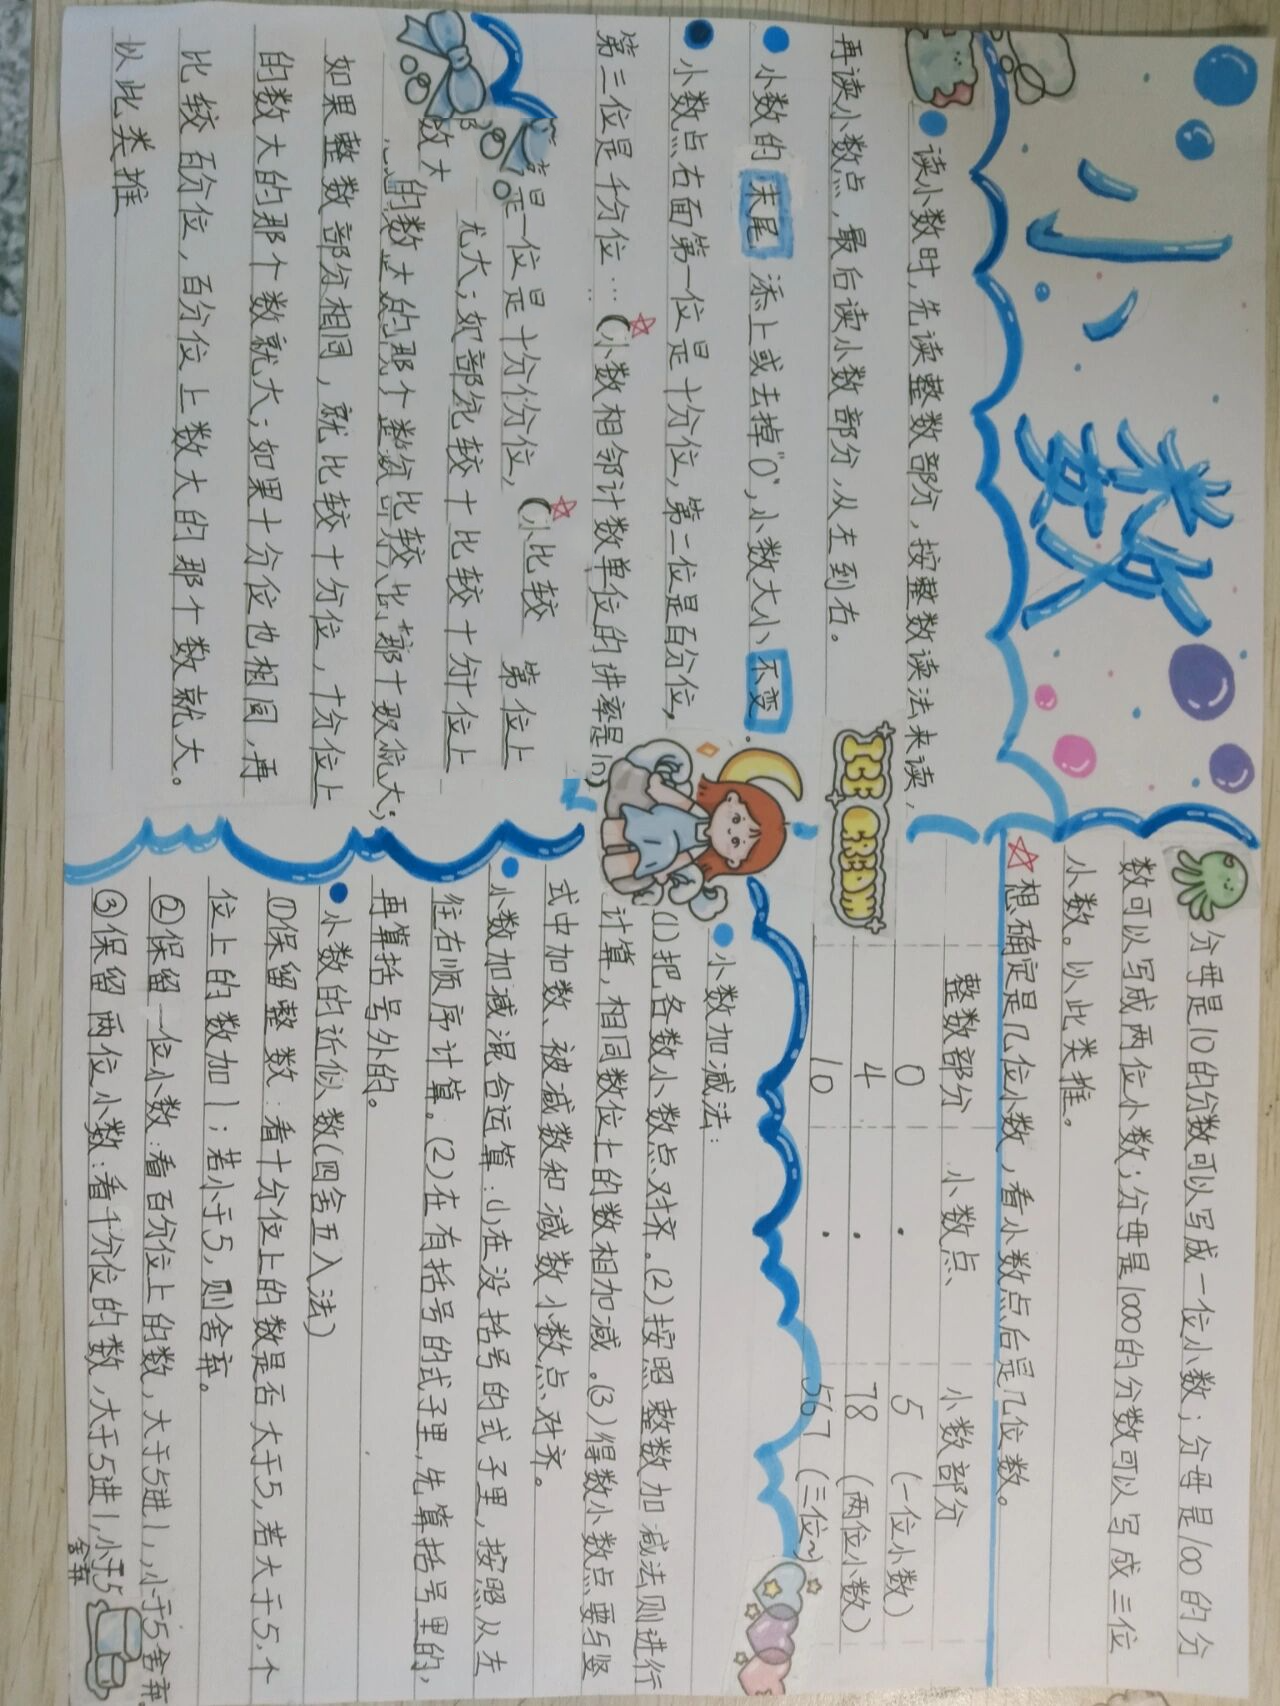 小数
读小数时，先读整数部分，按整数读法来读，
再读小数点，最后读小数部分，从左到右。
小数的末尾添上或去掉"0"，小数大小不变.
小数点右面第一位是十分位，第二位是百分位，
第三位是千分位…
(小数相邻计数单位的进率是10)
是一位是十分份位，
(小比较 第位上
数大
比较十比较十分十位上
的数大的那个整
如果整数部分相同，就比较十分位，十分位上
的数大的那个数就大；如果十分位也相同，再
比较百分位，百分位上数大的那个数就大。
以此类推
ICE CREAM
分母是10的分数可以写成一位小数；分母是100的分
数可以写成两位小数；分母是1000的分数可以写成三位
小数。以此类推。
想确定是几位小数，看小数点后是几位数。
整数部分 小数点 小数部分
0 . 5 (一位小数)
4 . 78 (两位小数)
10 . 567 (三位~)
小数加减法：
(1)把各数小数点对齐。(2)按照整数加减法则进行
计算，相同数位上的数相加减。(3)得数小数点要与竖
式中加数、被减数和减数小数点对齐。
小数加减混合运算：(1)在没括号的式子里，按照从左
往右顺序计算。(2)在有括号的式子里，先算括号里的，
再算括号外的。
小数的近似数(四舍五入法)
①保留整数：看十分位上的数是否大于5，若大于5，个
位上的数加1；若小于5，则舍弃。
②保留一位小数：看百分位上的数，大于5进1，小于5舍弃
③保留两位小数：看千分位的数，大于5进1，小于5
舍弃